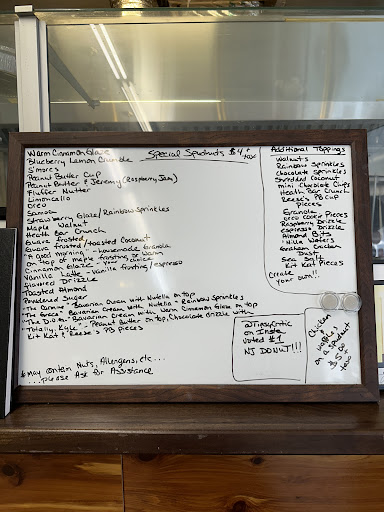 Special Spudnuts $4 + tax
Warm Cinnamon Glaze
Blueberry Lemon Crumble
S'mores
Peanut Butter Cup
Peanut Butter & Jeremy (Raspberry Jam)
Fluffer Nutter
Limoncello
Oreo
Samoa
Strawberry Glaze/Rainbow Sprinkles
Maple Walnut
Heath Bar Crunch
Guava frosted
Guava frosted/toasted Coconut
"A good morning" - homemade granola
on top of maple frosting or warm
Cinnamon Glaze - your choice
Vanilla Latte - Vanilla frosting/espresso
flavored Drizzle
Toasted Almond
Powdered Sugar
Bavarian Cream with Nutella on top
"The Grace" Bavarian Cream with Nutella + Rainbow Sprinkles
Bavarian Cream with Warm Cinnamon Glaze on top
"Totally Kyle" - Peanut Butter on top, Chocolate drizzle with
Kit Kat & Reese's PB pieces
* May contain Nuts, Allergens, etc...
...please Ask for Assistance
Additional Toppings
Walnuts
Rainbow Sprinkles
Chocolate Sprinkles
Shredded Coconut
mini Chocolate Chips
Heath Bar Crunch
Reese's PB Cup
pieces
Granola
Oreo Cookie Pieces
Raspberry Drizzle
espresso Drizzle
Almond Bits
Nilla Wafers
Graham Cracker
Dust
Sea Salt
Kit Kat Pieces
Create
your own!!
@TipsyCritic
on Insta
voted #1
NJ DONUT!!!
Chicken
& waffles
on a spudnut
$5.00
+ tax